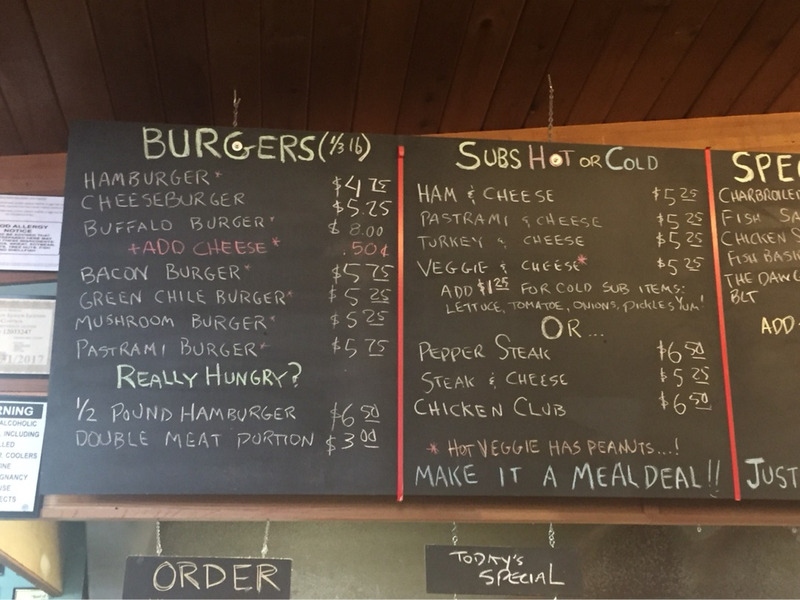 BURGERS (1/3 lb)
HAMBURGER* $4.75
CHEESEBURGER $5.25
BUFFALO BURGER* $8.00
+ADD CHEESE* .50¢
BACON BURGER* $5.75
GREEN CHILE BURGER* $5.25
MUSHROOM BURGER* $5.25
PASTRAMI BURGER* $5.75
REALLY HUNGRY?
1/2 POUND HAMBURGER $6.50
DOUBLE MEAT PORTION $3.00
SUBS HOT OR COLD
HAM & CHEESE $5.25
PASTRAMI & CHEESE $5.25
TURKEY & CHEESE $5.25
VEGGIE & CHEESE* $5.25
ADD $1.25 FOR COLD SUB ITEMS:
LETTUCE, TOMATOE, ONIONS, PICKLES YUM!
OR...
PEPPER STEAK $6.50
STEAK & CHEESE $5.25
CHICKEN CLUB $6.50
* HOT VEGGIE HAS PEANUTS...!
MAKE IT A MEAL DEAL!!
SPE
CHARBROILE
FISH SA
CHICKEN S
FISH BASK
THE DAWG
BLT
ADD
JUST
OD ALLERGY
NOTICE
1/2017
RNING
ALCOHOLIC
INCLUDING
LLED
COOLERS
INE
GNANCY
USE
ECTS
ORDER
TODAY'S
SPECIAL